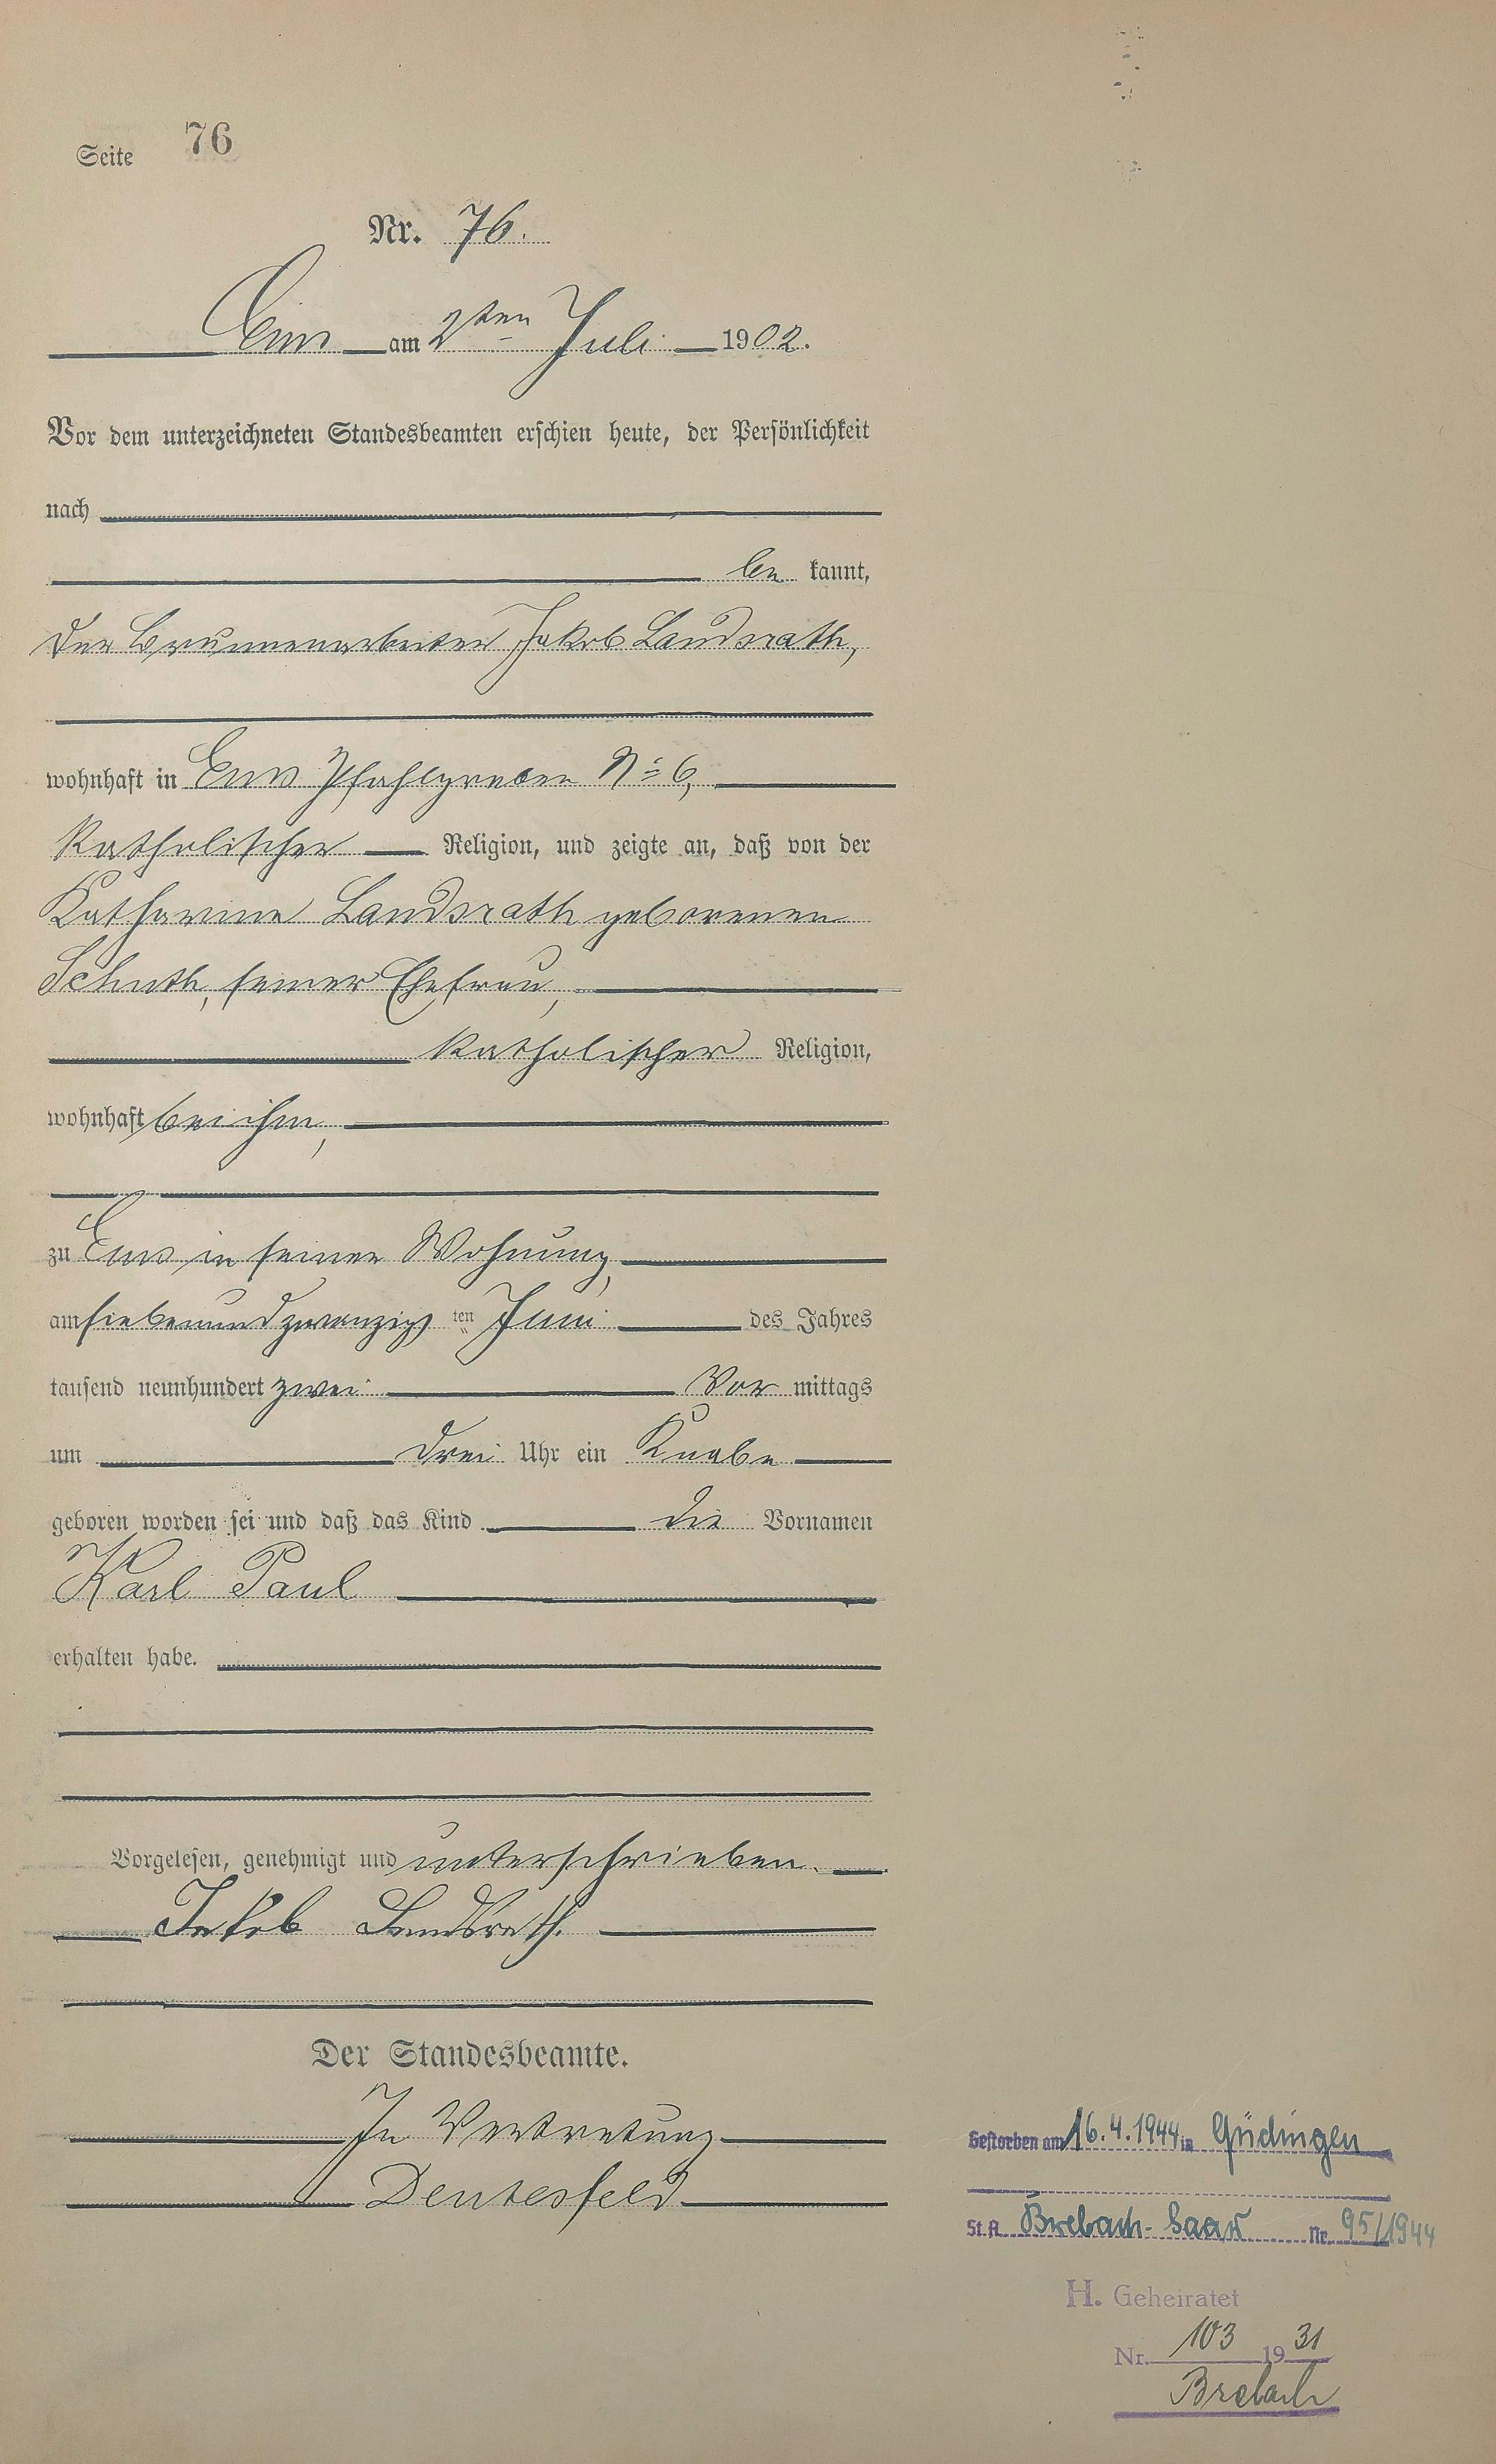 Seite 76
Nr. 76.
Ems am 2ten Juli 1902.
Vor dem unterzeichneten Standesbeamten erschien heute, der Persönlichkeit
nach
be kannt,
der Brunnenarbeiter Jakob Landsrath,
wohnhaft in Ems Pfahlgraben No 6,
katholischer Religion, und zeigte an, daß von der
Katharina Landsrath geborenen
Schuth, seiner Ehefrau,
katholischer Religion,
wohnhaft bei ihm,
zu Ems in seiner Wohnung,
am siebenundzwanzig ten Juni des Jahres
tausend neunhundert zwei Vor mittags
um drei Uhr ein Knabe
geboren worden sei und daß das Kind die Vornamen
Karl Paul
erhalten habe.
Vorgelesen, genehmigt und unterschrieben.
Jakob Landsrath.
Der Standesbeamte.
In Vertretung
Deutesfeld
Gestorben am 16.4.1944 in Güdingen
St.A. Brebach-Saar Nr. 95/1944
H. Geheiratet
Nr. 103 1931
Brebach